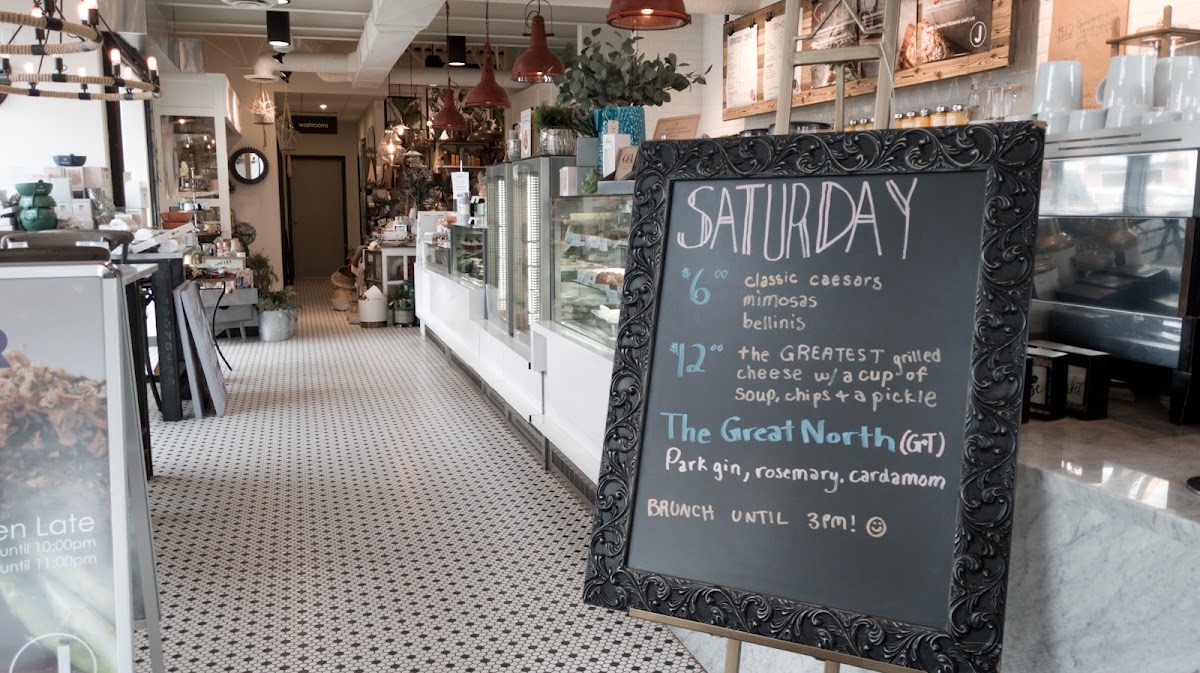 washrooms
SATURDAY
$6.00 classic caesars
mimosas
bellinis
$12.00 the GREATEST grilled
cheese w/ a cup of
soup, chips & a pickle
The Great North (G+T)
Park gin, rosemary, cardamom
BRUNCH UNTIL 3PM! ☺
en Late
until 10:00pm
until 11:00pm
J
J